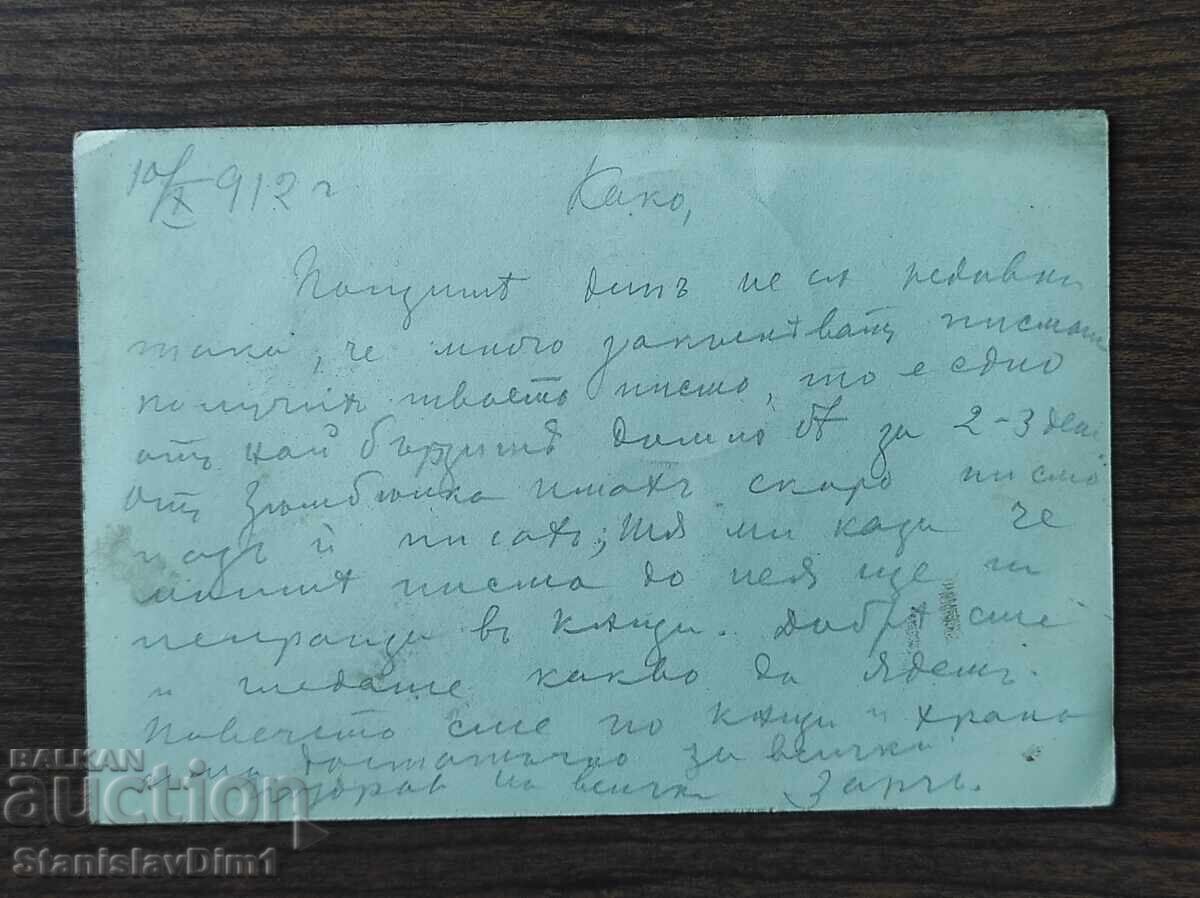 10/X 912 г
Како,
Пощитѣ днъ не са редовни
така, че много закъснѣватъ писмата
получих твоето писмо, то е едно
отъ най бързитѣ дошло б за 2-3 дни
От Зюмбюлка имахъ скоро писмо
и писахъ; тя ми каза че
моитѣ писма до нея ще ги
въ къщи. Добрѣ сме
и гледаме какво да ядемъ.
Повечето сме по къщи и храна
има достатъчно за всички
Поздрав на всички Зарч.
BALKAN
auction
StanislavDim1